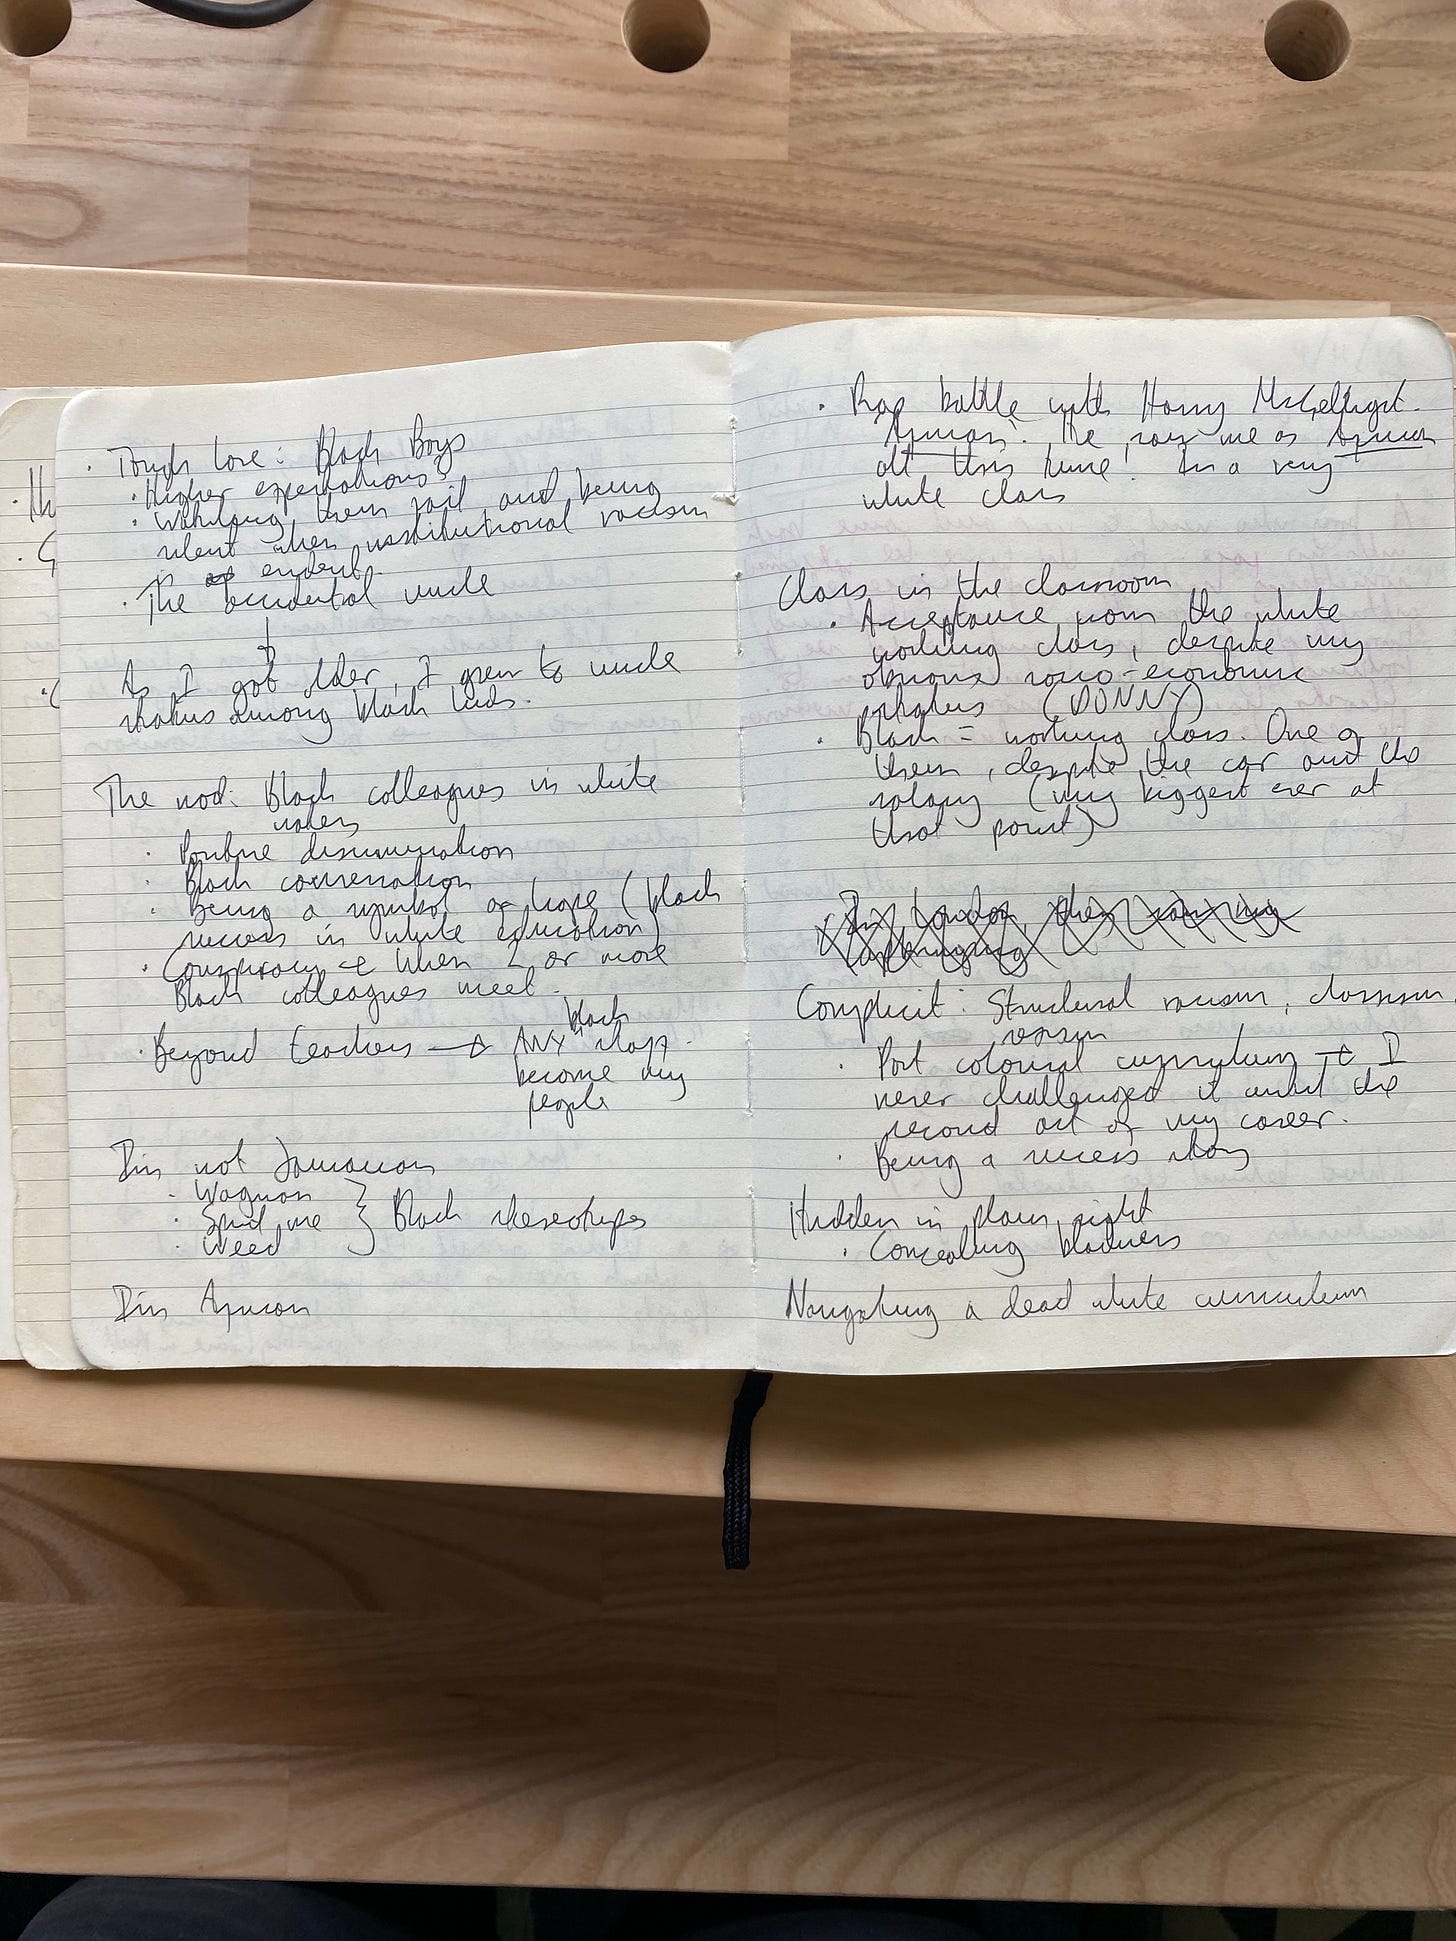 · Tough Love: Black Boys
· Higher expectations?
· Watching them fail and being
silent when institutional racism
evident
· The accidental uncle
As I got older, I grew to uncle
status among black kids.
The nod: Black colleagues in white
· Positive discrimination
· Black conversation
· Being a symbol of hope (black
success in white education)
· Conspiracy when 2 or more
Black colleagues meet.
· Beyond teachers → ANY black staff
become my
people
I'm not Jamaican
· Wagwan
· Spud me } Black stereotypes
· Weed
I'm African
· Rap battle with Harry
African. He saw me as African
all this time! In a very
white class
Class in the classroom
· Acceptance from the white
working class, despite my
obvious socio-economic
status (DONNY)
· Black = working class. One of
them, despite the car and the
salary (my biggest ever at
that point)
Complicit: Structural racism, classism
· Post colonial curriculum → I
never challenged it until the
second act of my career.
· Being a success story
Hidden in plain sight
· Concealing blackness
Navigating a dead white curriculum